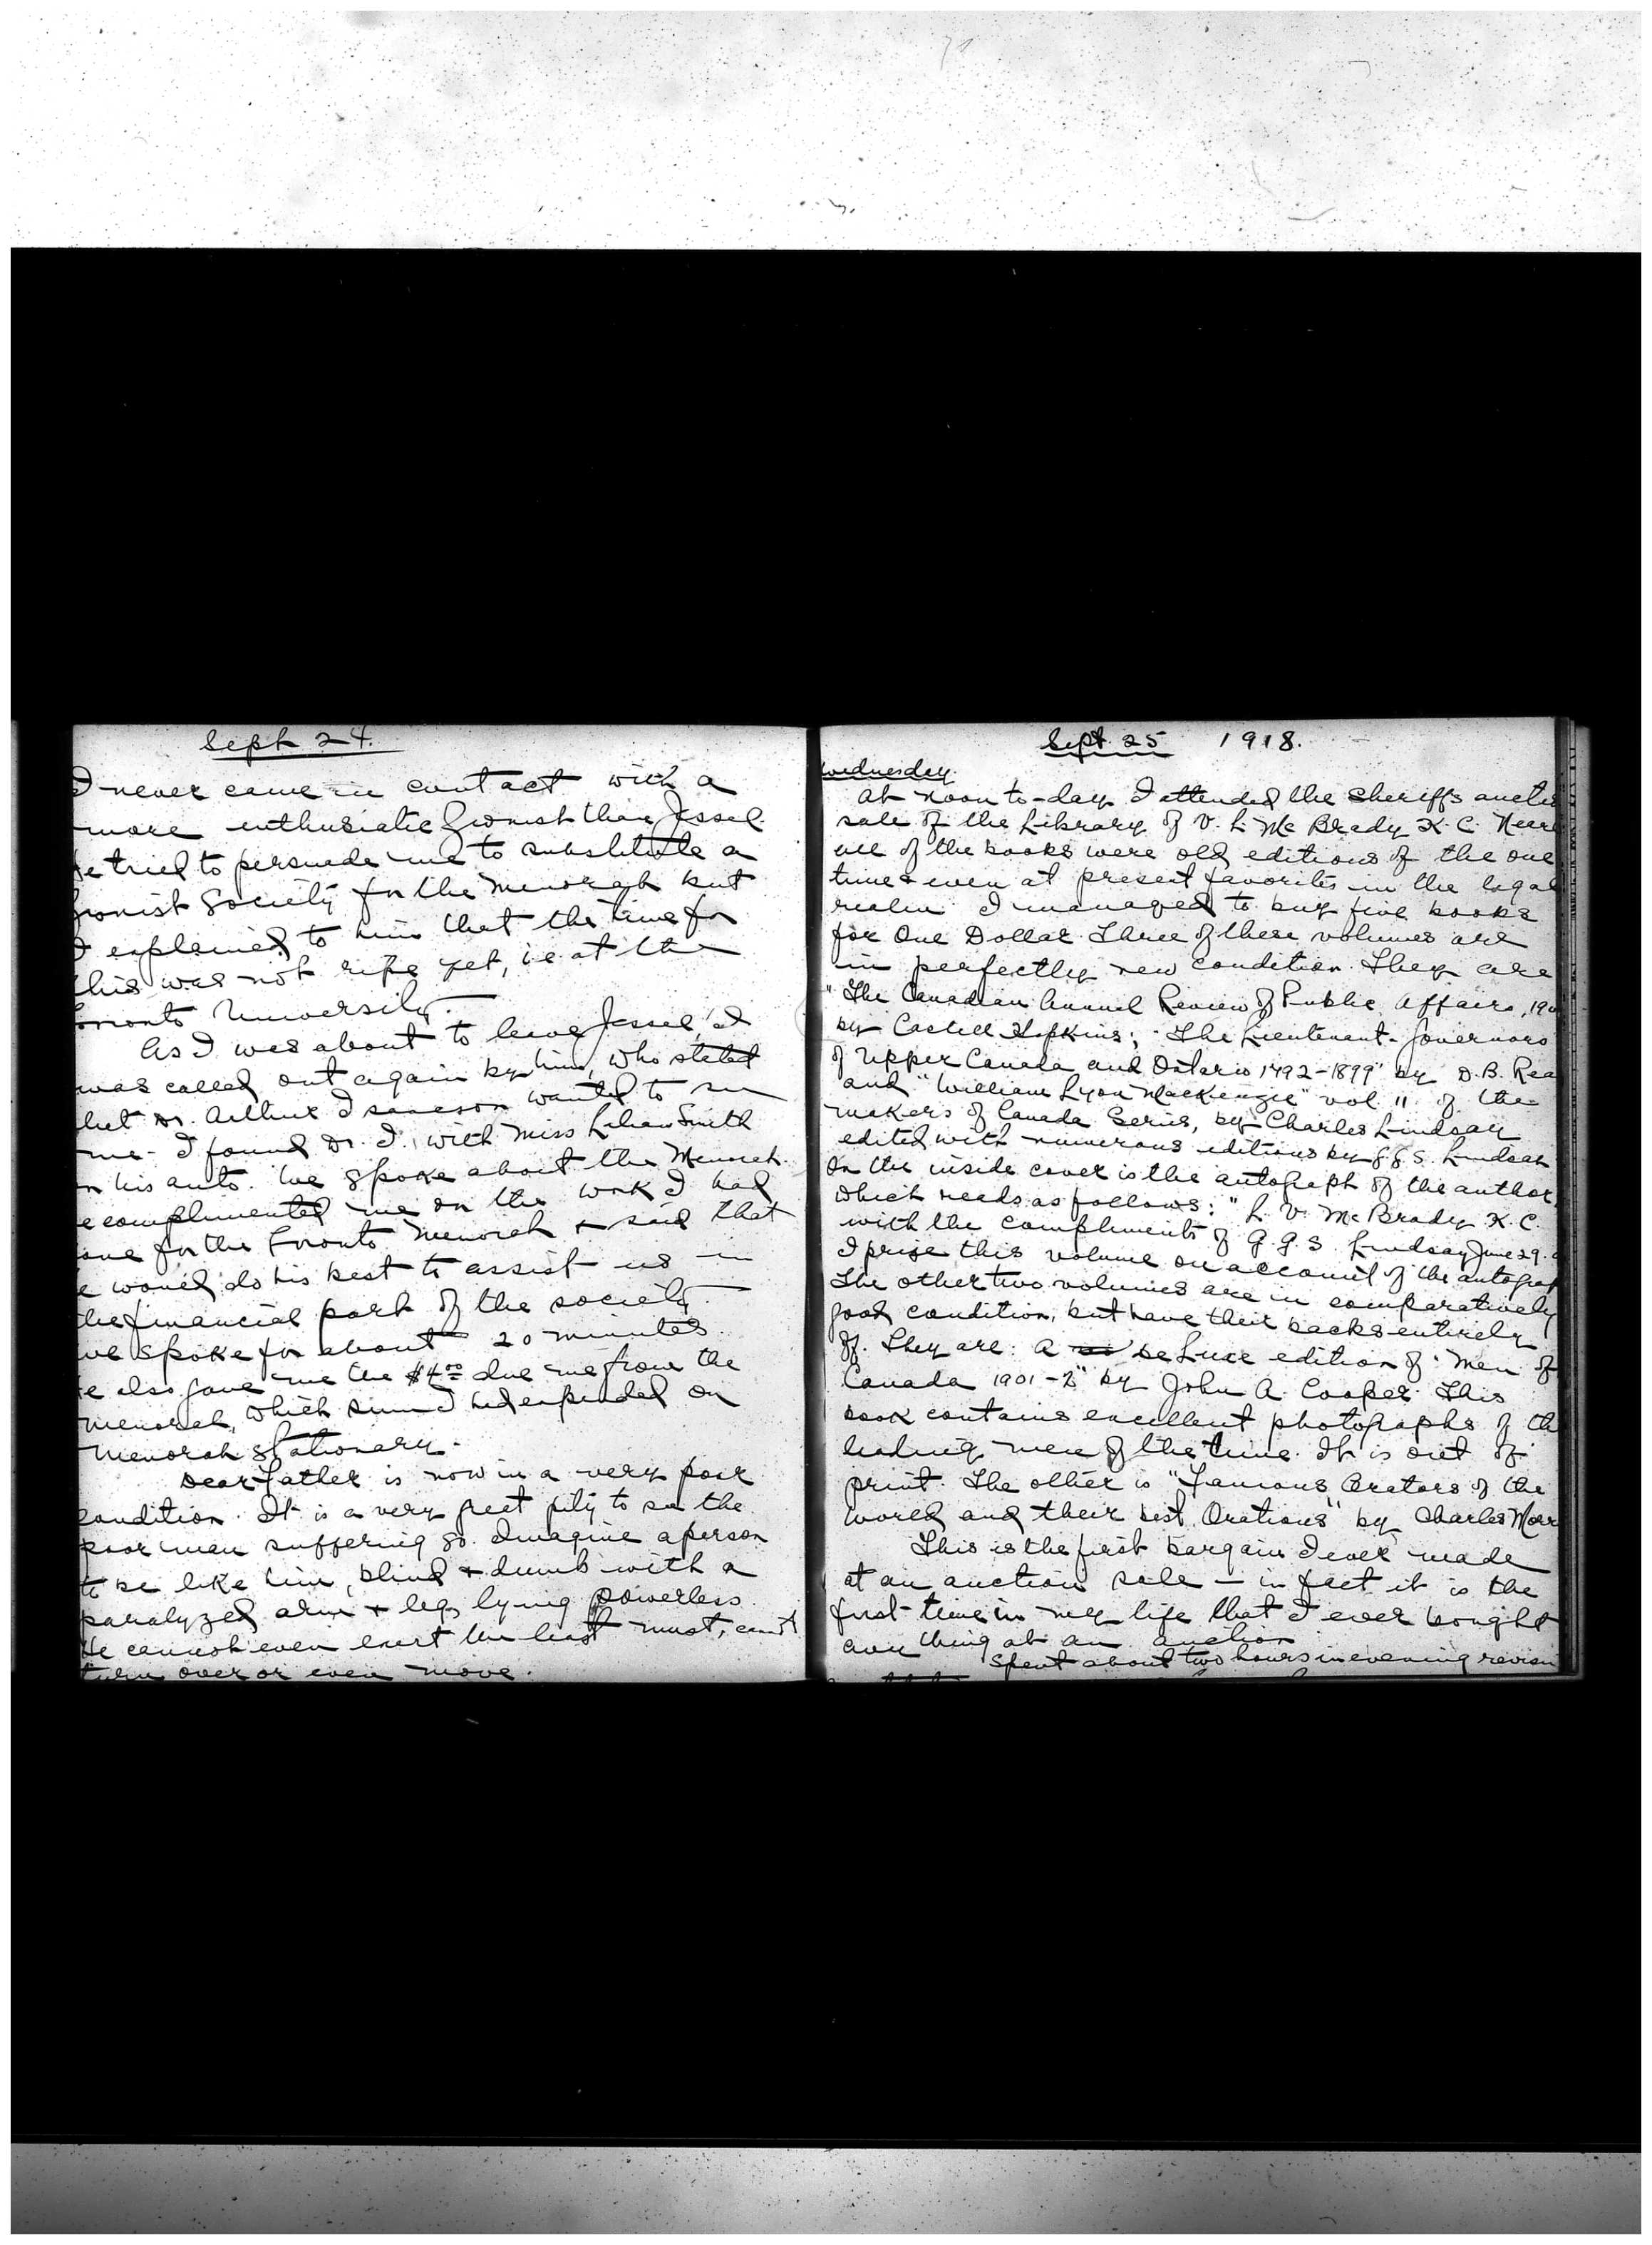 Sept 24.
I never came in contact with a
more enthusiatic Zionist than Jessel.
He tried to persuade me to substitute a
Zionist Society for the Menorah but
I explained to him that the time for
this was not ripe yet, i.e. at the
Toronto University.
As I was about to leave Jessel, I
was called out again by him, who stated
that Dr. Arthur Isaacson wanted to see
me. I found Dr. I. with Miss Lilian Smith
in his auto. We spoke about the Menorah.
He complimented me on the work I had
done for the Toronto Menorah + said that
he would do his best to assist us in
the financial part of the society.
We spoke for about 20 minutes.
He also gave me the $4.00 due me from the
Menorah, which sum I had expended on
Menorah stationary.
Dear Father is now in a very poor
condition. It is a very great pity to see the
poor man suffering so. Imagine a person
to be like him, blind + dumb with a
paralyzed arm + leg, lying powerless.
He cannot even exert the least must, can't
turn over or even move.
Sept. 25 1918.
Wednesday.
At noon to-day I attended the Sheriffs auction
sale of the Library of V. L. McBrady K.C. Nearly
all of the books were old editions of the one
time + even at present favorites in the legal
realm. I managed to buy five books
for One Dollar. Three of these volumes are
in perfectly new condition. They are
"The Canadian Annual Review of Public Affairs, 190
by Castell Hopkins; "The Lieutenant-Governors
of Upper Canada and Ontario 1792-1899" by D.B. Read
and "William Lyon Mackenzie" vol. 11 of the
makers of Canada Series, by Charles Lindsay
edited with numerous editions by G.G.S. Lindsay
On the inside cover is the autograph of the author,
which reads as follows: "L. V. McBrady K.C.
with the compliments of G.G.S. Lindsay June 29.
I prize this volume on account of the autograph
The other two volumes are in comparatively
good condition, but have their backs entirely
off. They are: A de Luxe edition of "Men of
Canada 1901-2" by John A. Cooper. This
book contains excellent photographs of the
leading men of the time. It is out of
print. The other is "Famous Orators of the
World and their best Orations" by Charles Morr
This is the first bargain I ever made
at an auction sale — in fact it is the
first time in my life that I ever bought
any thing at an auction.
Spent about two hours in evening revisin